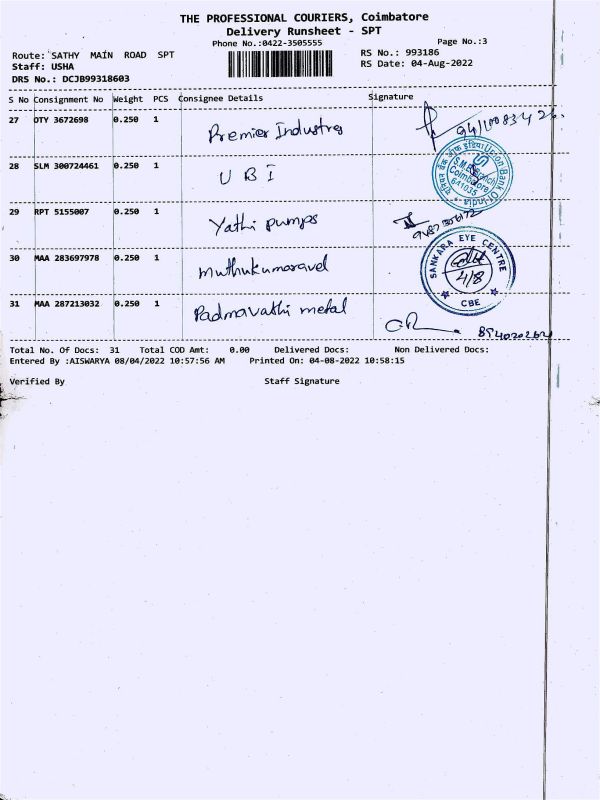 THE PROFESSIONAL COURIERS, Coimbatore
Delivery Runsheet - SPT
Phone No.:0422-3505555 Page No.:3
Route: SATHY MAIN ROAD SPT RS No.: 993186
Staff: USHA RS Date: 04-Aug-2022
DRS No.: DCJB99318603
S No Consignment No Weight PCS Consignee Details Signature
27 OTY 3672698 0.250 1 Premier Industres
28 SLM 300724461 0.250 1 U B I
यूनियन बैंक ऑफ इंडिया Union Bank Of India
S.M.E. Branch
Coimbatore
641035
29 RPT 5155007 0.250 1 Yathi pumps
30 MAA 283697978 0.250 1 muthukumaravel
SANKARA EYE CENTRE
4/8
CBE
31 MAA 287213032 0.250 1 Padmavathi metal
Total No. Of Docs: 31 Total COD Amt: 0.00 Delivered Docs: Non Delivered Docs:
Entered By :AISWARYA 08/04/2022 10:57:56 AM Printed On: 04-08-2022 10:58:15
Verified By Staff Signature